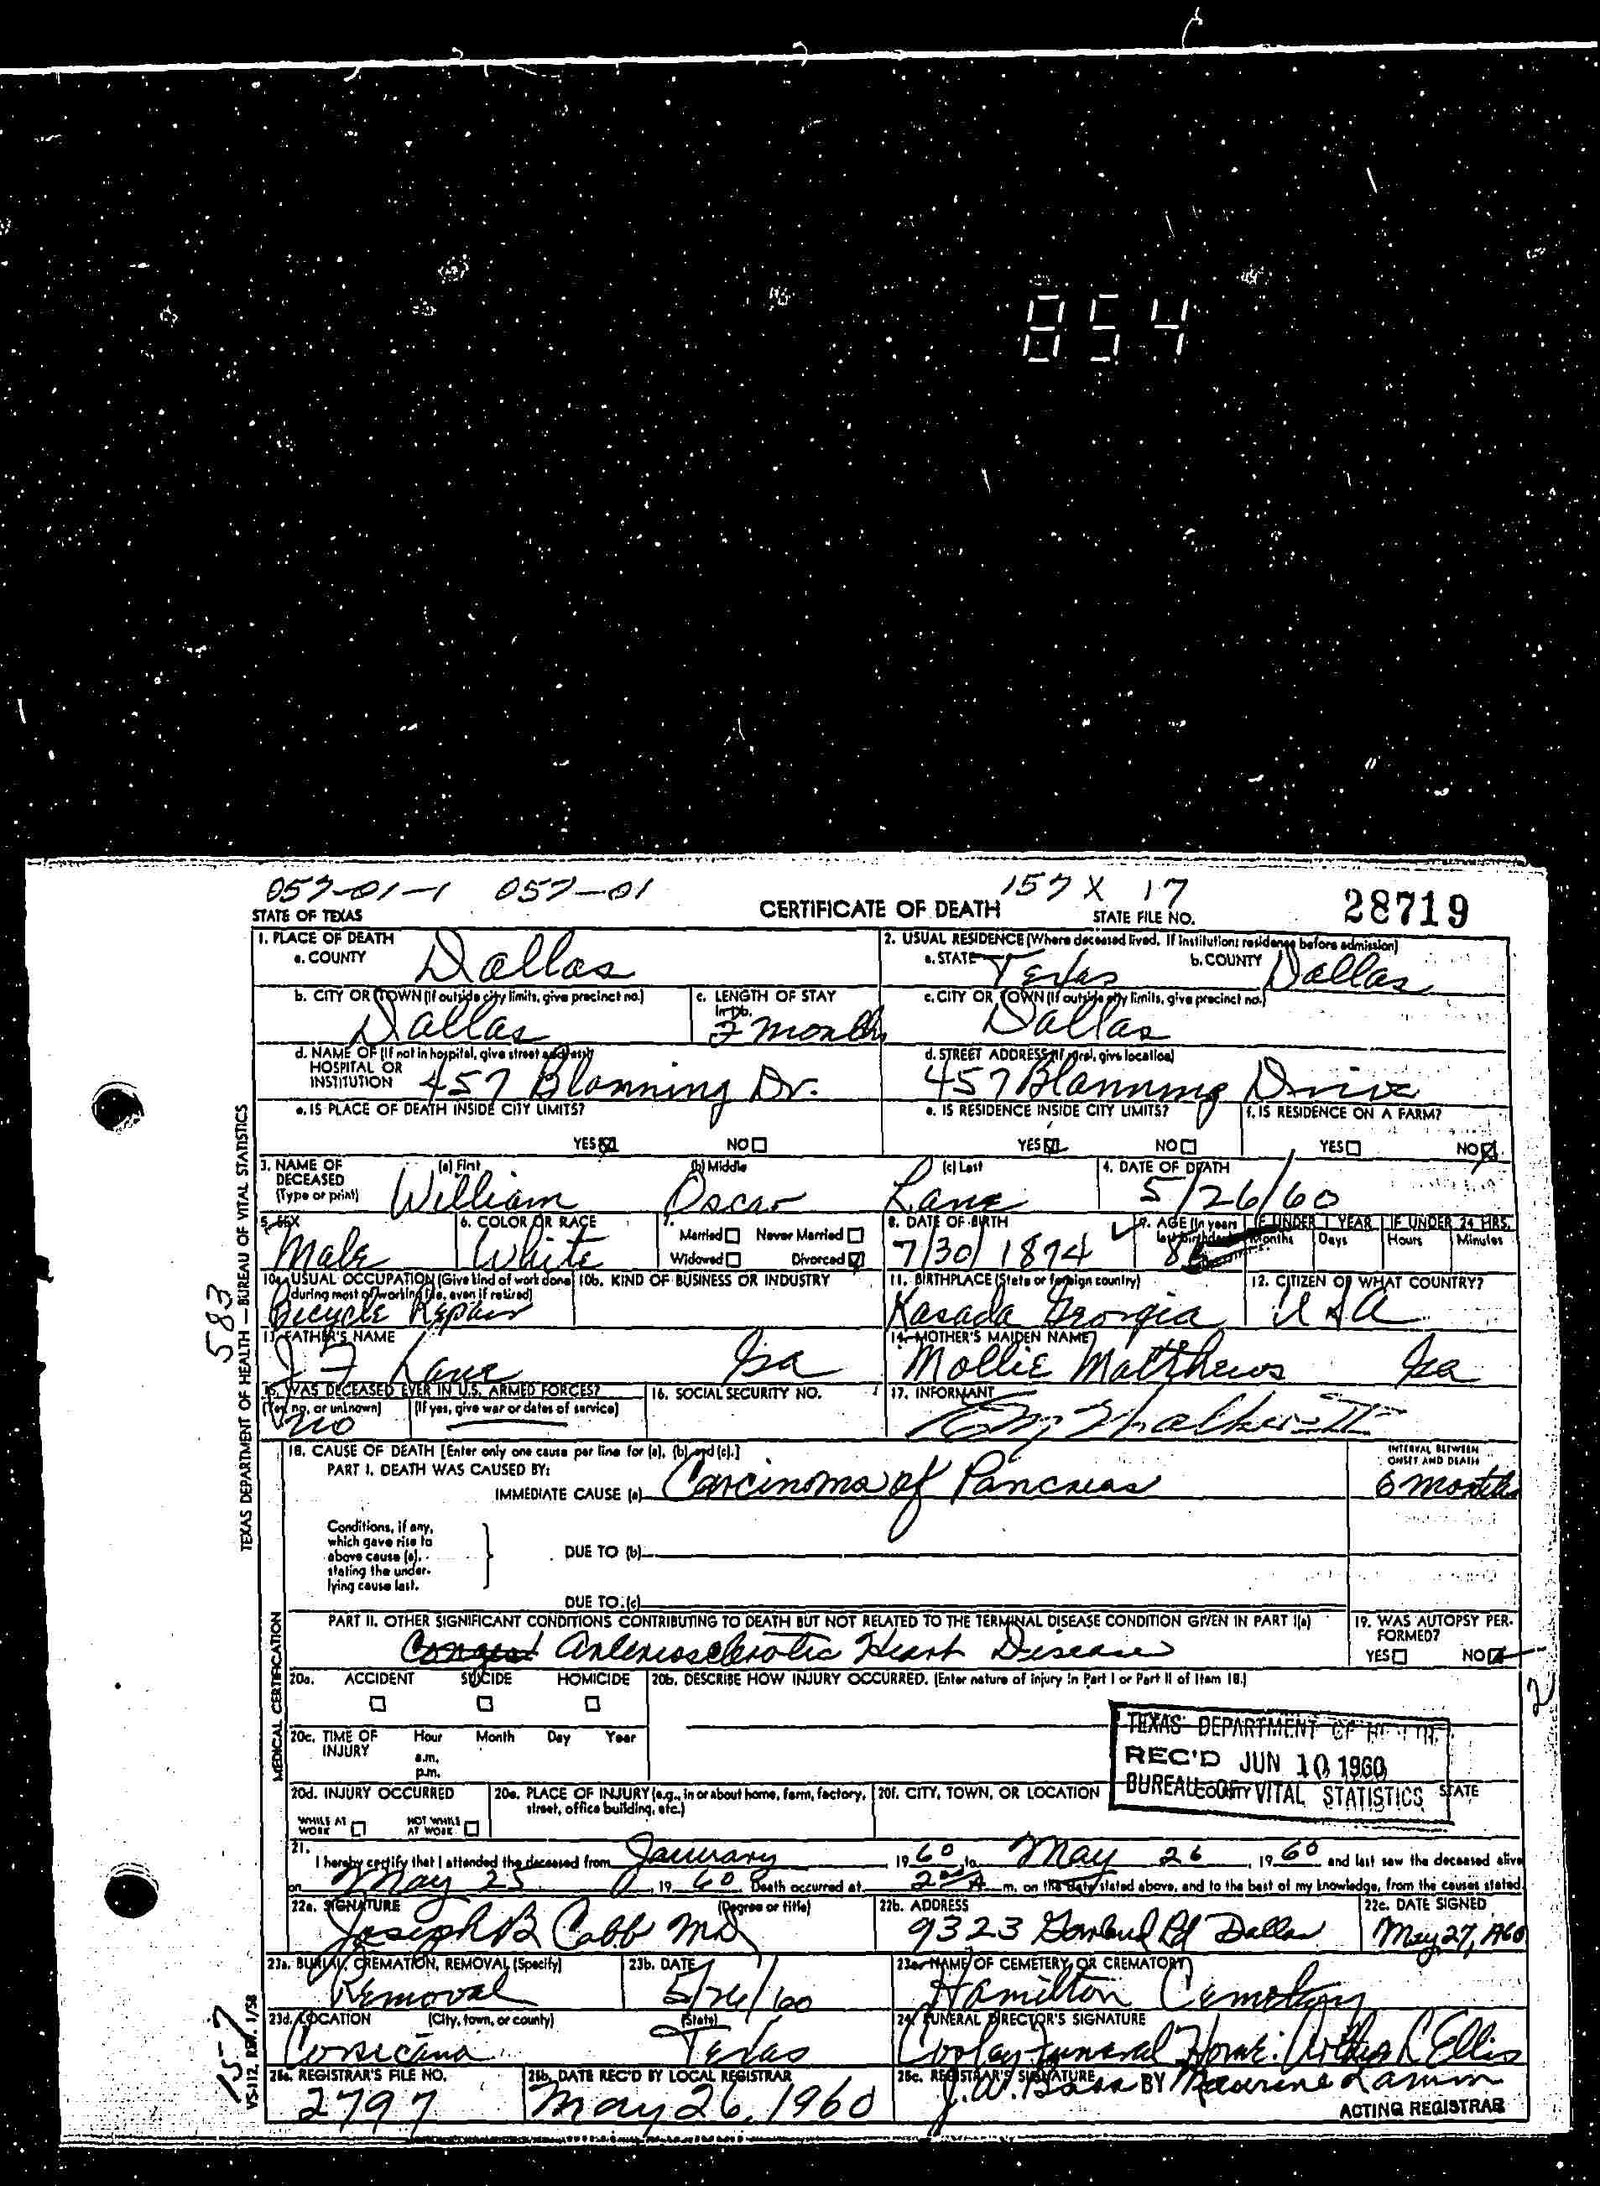 854
057-01-1 057-01 157 X 17
STATE OF TEXAS CERTIFICATE OF DEATH STATE FILE NO. 28719
1. PLACE OF DEATH
a. COUNTY Dallas
2. USUAL RESIDENCE (Where deceased lived. If institution: residence before admission)
a. STATE Texas b. COUNTY Dallas
b. CITY OR TOWN (If outside city limits, give precinct no.) Dallas
c. LENGTH OF STAY in 1b. 7 months
c. CITY OR TOWN (If outside city limits, give precinct no.) Dallas
d. NAME OF (If not in hospital, give street address)
HOSPITAL OR
INSTITUTION 457 Blanning Dr.
d. STREET ADDRESS (If rural, give location)
457 Blanning Drive
e. IS PLACE OF DEATH INSIDE CITY LIMITS?
YES NO
e. IS RESIDENCE INSIDE CITY LIMITS?
YES NO
f. IS RESIDENCE ON A FARM?
YES NO
3. NAME OF DECEASED (Type or print)
(a) First William (b) Middle Oscar (c) Last Lane
4. DATE OF DEATH 5/26/60
5. SEX Male
6. COLOR OR RACE White
7. Married Never Married
Widowed Divorced
8. DATE OF BIRTH 7/30/1874
9. AGE (In years last birthday)
IF UNDER 1 YEAR Months Days
IF UNDER 24 HRS. Hours Minutes
10a. USUAL OCCUPATION (Give kind of work done during most of working life, even if retired)
Bicycle Repair
10b. KIND OF BUSINESS OR INDUSTRY
11. BIRTHPLACE (State or foreign country)
Kasada Georgia
12. CITIZEN OF WHAT COUNTRY?
USA
13. FATHER'S NAME
J F Lane Ga
14. MOTHER'S MAIDEN NAME
Mollie Matthews Ga
15. WAS DECEASED EVER IN U.S. ARMED FORCES?
(Yes, no, or unknown) (If yes, give war or dates of service)
no
16. SOCIAL SECURITY NO.
17. INFORMANT
18. CAUSE OF DEATH [Enter only one cause per line for (a), (b), and (c).]
PART I. DEATH WAS CAUSED BY:
IMMEDIATE CAUSE (a) Carcinoma of Pancreas
INTERVAL BETWEEN ONSET AND DEATH
6 months
Conditions, if any,
which gave rise to
above cause (a),
stating the under-
lying cause last.
DUE TO (b)
DUE TO (c)
PART II. OTHER SIGNIFICANT CONDITIONS CONTRIBUTING TO DEATH BUT NOT RELATED TO THE TERMINAL DISEASE CONDITION GIVEN IN PART I(a)
Arteriosclerotic Heart Disease
19. WAS AUTOPSY PERFORMED?
YES NO
20a. ACCIDENT SUICIDE HOMICIDE
20b. DESCRIBE HOW INJURY OCCURRED. (Enter nature of injury in Part I or Part II of Item 18.)
20c. TIME OF INJURY Hour Month Day Year
a.m.
p.m.
TEXAS DEPARTMENT OF HEALTH
REC'D JUN 10 1960
BUREAU OF VITAL STATISTICS
20d. INJURY OCCURRED
WHILE AT WORK NOT WHILE AT WORK
20e. PLACE OF INJURY (e.g., in or about home, farm, factory, street, office building, etc.)
20f. CITY, TOWN, OR LOCATION COUNTY STATE
21. I hereby certify that I attended the deceased from January, 1960 to May 26, 1960 and last saw the deceased alive
on May 25, 1960. Death occurred at 2:00 A m. on the date stated above, and to the best of my knowledge, from the causes stated.
22a. SIGNATURE (Degree or title)
Joseph B Cobb MD
22b. ADDRESS
9323 Garland Rd Dallas
22c. DATE SIGNED
May 27, 1960
23a. BURIAL, CREMATION, REMOVAL (Specify)
Removal
23b. DATE
5/26/60
23c. NAME OF CEMETERY OR CREMATORY
Hamilton Cemetery
23d. LOCATION (City, town, or county) (State)
Corsicana Texas
24. FUNERAL DIRECTOR'S SIGNATURE
Corley Funeral Home: Arthur C Ellis
25a. REGISTRAR'S FILE NO.
2797
25b. DATE REC'D BY LOCAL REGISTRAR
May 26, 1960
25c. REGISTRAR'S SIGNATURE
J.W. Bass BY Maurine Lamm
ACTING REGISTRAR
TEXAS DEPARTMENT OF HEALTH—BUREAU OF VITAL STATISTICS
583
MEDICAL CERTIFICATION
VS-112, REV. 1/58
157
2